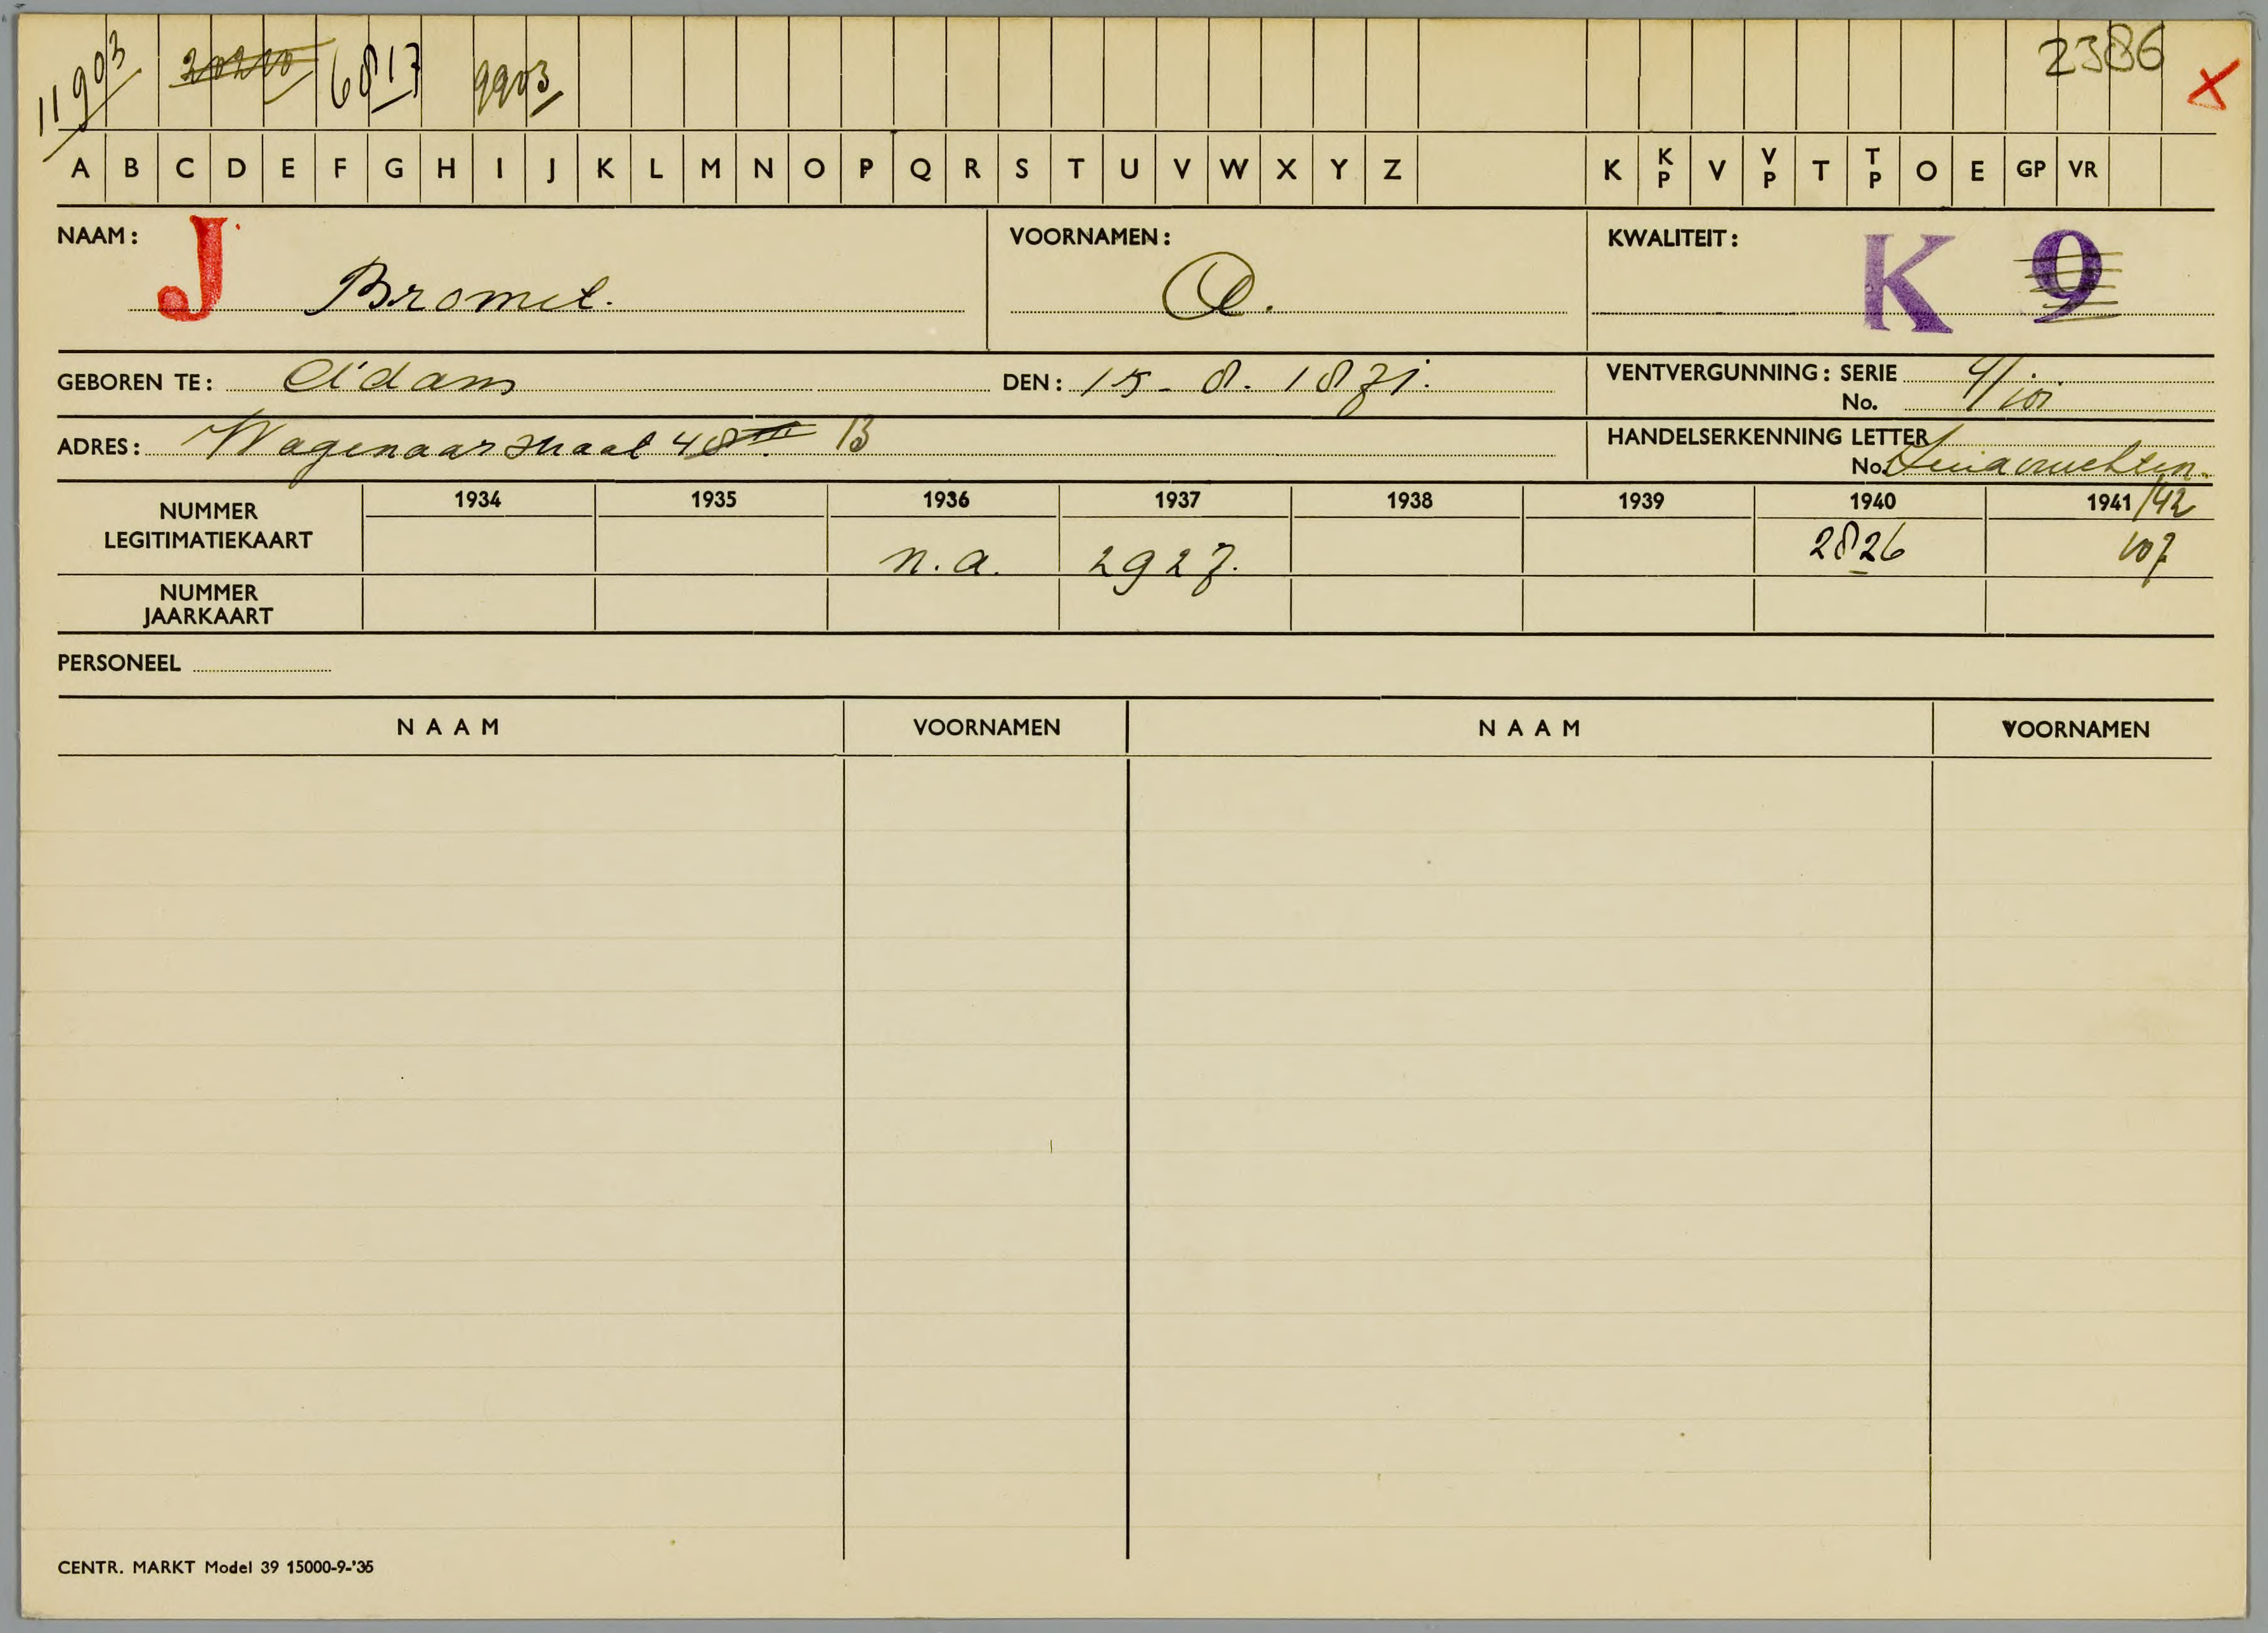 11903 20200 6817 9903 2386 X
A B C D E F G H I J K L M N O P Q R S T U V W X Y Z K KP V VP T TP O E GP VR
NAAM: J Bromet. VOORNAMEN: A. KWALITEIT: K 9
GEBOREN TE: A'dam DEN: 15-8. 1871. VENTVERGUNNING: SERIE
No.
ADRES: Wagenaarstraat 48 III B HANDELSERKENNING LETTER
No. Zuidvruchten.
1934 1935 1936 1937 1938 1939 1940 1941/42
NUMMER LEGITIMATIEKAART n.a. 2927. 2826 107
NUMMER JAARKAART
PERSONEEL
NAAM VOORNAMEN NAAM VOORNAMEN
CENTR. MARKT Model 39 15000-9-'35